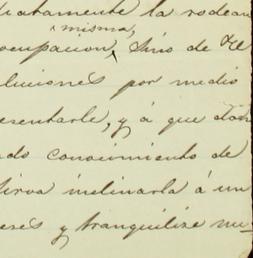 diatamente la rodean
misma,
ocupacion, sino de
luciones por medio
esentarle, y á que
ndo conocimiento de
sirva inclinarla á un
eres y tranquilize